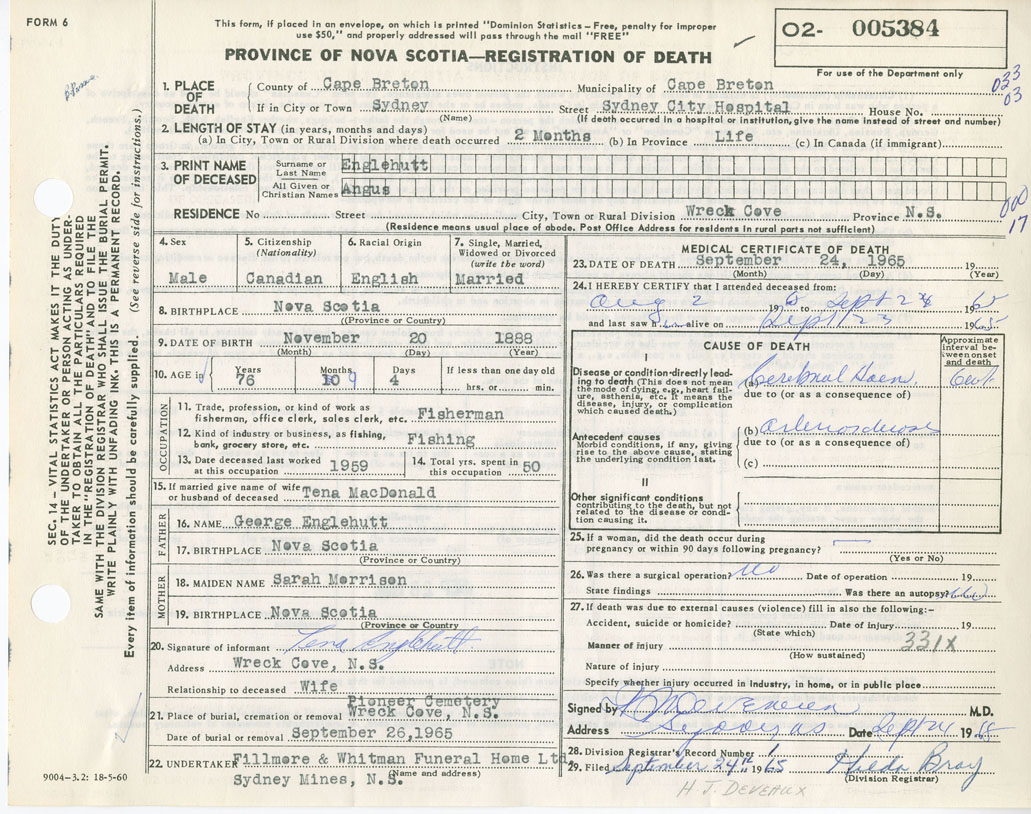 FORM 6
This form, if placed in an envelope, on which is printed "Dominion Statistics – Free, penalty for improper
use $50," and properly addressed will pass through the mail "FREE"
PROVINCE OF NOVA SCOTIA—REGISTRATION OF DEATH
O2- 005384
For use of the Department only
033
03
1. PLACE OF DEATH
County of Cape Breton Municipality of Cape Breton
If in City or Town Sydney Street Sydney City Hospital House No.
(Name) (If death occurred in a hospital or institution, give the name instead of street and number)
2. LENGTH OF STAY (in years, months and days)
(a) In City, Town or Rural Division where death occurred 2 Months (b) In Province Life (c) In Canada (if immigrant)
3. PRINT NAME OF DECEASED
Surname or Last Name Englehutt
All Given or Christian Names Angus
000
17
RESIDENCE No Street City, Town or Rural Division Wreck Cove Province N.S.
(Residence means usual place of abode. Post Office Address for residents in rural parts not sufficient)
4. Sex
Male
5. Citizenship (Nationality)
Canadian
6. Racial Origin
English
7. Single, Married, Widowed or Divorced (write the word)
Married
8. BIRTHPLACE Nova Scotia
(Province or Country)
9. DATE OF BIRTH November 20 1888
(Month) (Day) (Year)
10. AGE in Years Months Days If less than one day old
76 10 9 4 hrs. or min.
OCCUPATION
11. Trade, profession, or kind of work as
fisherman, office clerk, sales clerk, etc. Fisherman
12. Kind of industry or business, as fishing,
bank, grocery store, etc. Fishing
13. Date deceased last worked at this occupation 1959
14. Total yrs. spent in this occupation 50
15. If married give name of wife or husband of deceased Tena MacDonald
FATHER
16. NAME George Englehutt
17. BIRTHPLACE Nova Scotia
(Province or Country)
MOTHER
18. MAIDEN NAME Sarah Morrison
19. BIRTHPLACE Nova Scotia
(Province or Country)
20. Signature of informant Tena Englehutt
Address Wreck Cove, N.S.
Relationship to deceased Wife
21. Place of burial, cremation or removal Pioneer Cemetery
Wreck Cove, N.S.
Date of burial or removal September 26,1965
22. UNDERTAKER Fillmore & Whitman Funeral Home Ltd.
Sydney Mines, N.S.
(Name and address)
MEDICAL CERTIFICATE OF DEATH
23. DATE OF DEATH September 24, 1965 19
(Month) (Day) (Year)
24. I HEREBY CERTIFY that I attended deceased from:
Aug 2 19 65 to Sept 24 19 65
and last saw him alive on Sept 23 1965
CAUSE OF DEATH
Approximate interval between onset and death
I
Disease or condition directly leading
to death (This does not mean
the mode of dying, e.g., heart failure,
asthenia, etc. It means the
disease, injury, or complication
which caused death.)
(a) Cerebral Haem.
due to (or as a consequence of)
Antecedent causes
Morbid conditions, if any, giving
rise to the above cause, stating
the underlying condition last.
(b) Arteriosclerosis
due to (or as a consequence of)
(c)
II
Other significant conditions
contributing to the death, but not
related to the disease or condition
causing it.
25. If a woman, did the death occur during
pregnancy or within 90 days following pregnancy?
(Yes or No)
26. Was there a surgical operation? No Date of operation 19
State findings Was there an autopsy?
27. If death was due to external causes (violence) fill in also the following:–
Accident, suicide or homicide? Date of injury 19
(State which)
Manner of injury 331X
(How sustained)
Nature of injury
Specify whether injury occurred in industry, in home, or in public place
Signed by M.D.
Address Date Sept 24 19 65
28. Division Registrar's Record Number 1
29. Filed September 24th 1965 Hilda Bray
(Division Registrar)
H J. DEVEAUX
9004–3.2: 18-5-60
SEC. 14 – VITAL STATISTICS ACT MAKES IT THE DUTY
OF THE UNDERTAKER OR PERSON ACTING AS UNDERTAKER
TO OBTAIN ALL THE PARTICULARS REQUIRED
IN THE "REGISTRATION OF DEATH" AND TO FILE THE
SAME WITH THE DIVISION REGISTRAR WHO SHALL ISSUE THE BURIAL PERMIT.
WRITE PLAINLY WITH UNFADING INK. THIS IS A PERMANENT RECORD.
Every item of information should be carefully supplied. (See reverse side for instructions.)